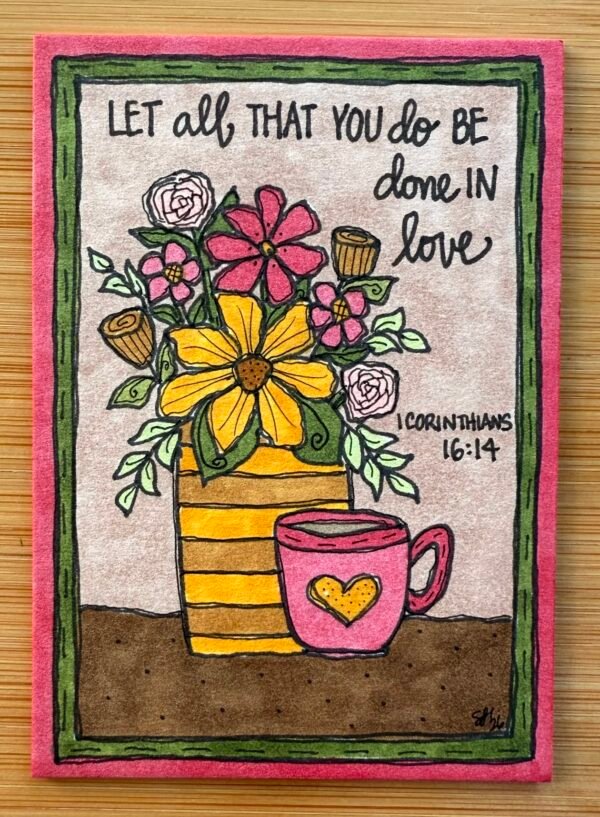 LET all THAT YOU do BE
done IN
love
1 CORINTHIANS
16:14